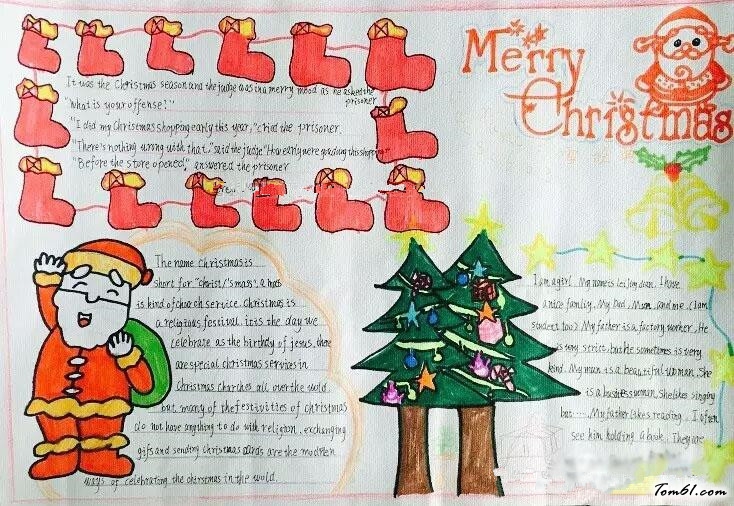 Merry
Christmas
It was the Christmas season and the judge was in a merry mood as he asked the
prisoner
"What is your offense?"
"I did my Christmas shopping early this year," cried the prisoner.
"There's nothing wrong with that," said the judge "How early were you doing this shopping"
"Before the store opened," answered the prisoner
The name christmas is
short for "christ's mass". a mass
is kind of church service. christmas is
a religious festival. it is the day we
celebrate as the birthdy of jesus, there
are special christmas services in
Christmas charches all over the wold
but many of the festivities of christmas
do not have anything to do with religion. exchanging
gifs and sending christmas cards are the modern
ways of celebrating the christmas in the wold.
I am a girl. My name is
I have
a nice family. My Dad, Mum, and me. (I am
student too) My father is a factory worker. He
is very strict. but he sometimes is very
kind. My mum is a beautiful woman. She
is a woman, she likes singing
but ...... My father likes reading. I often
see him holding a book. They are
Tom61.com